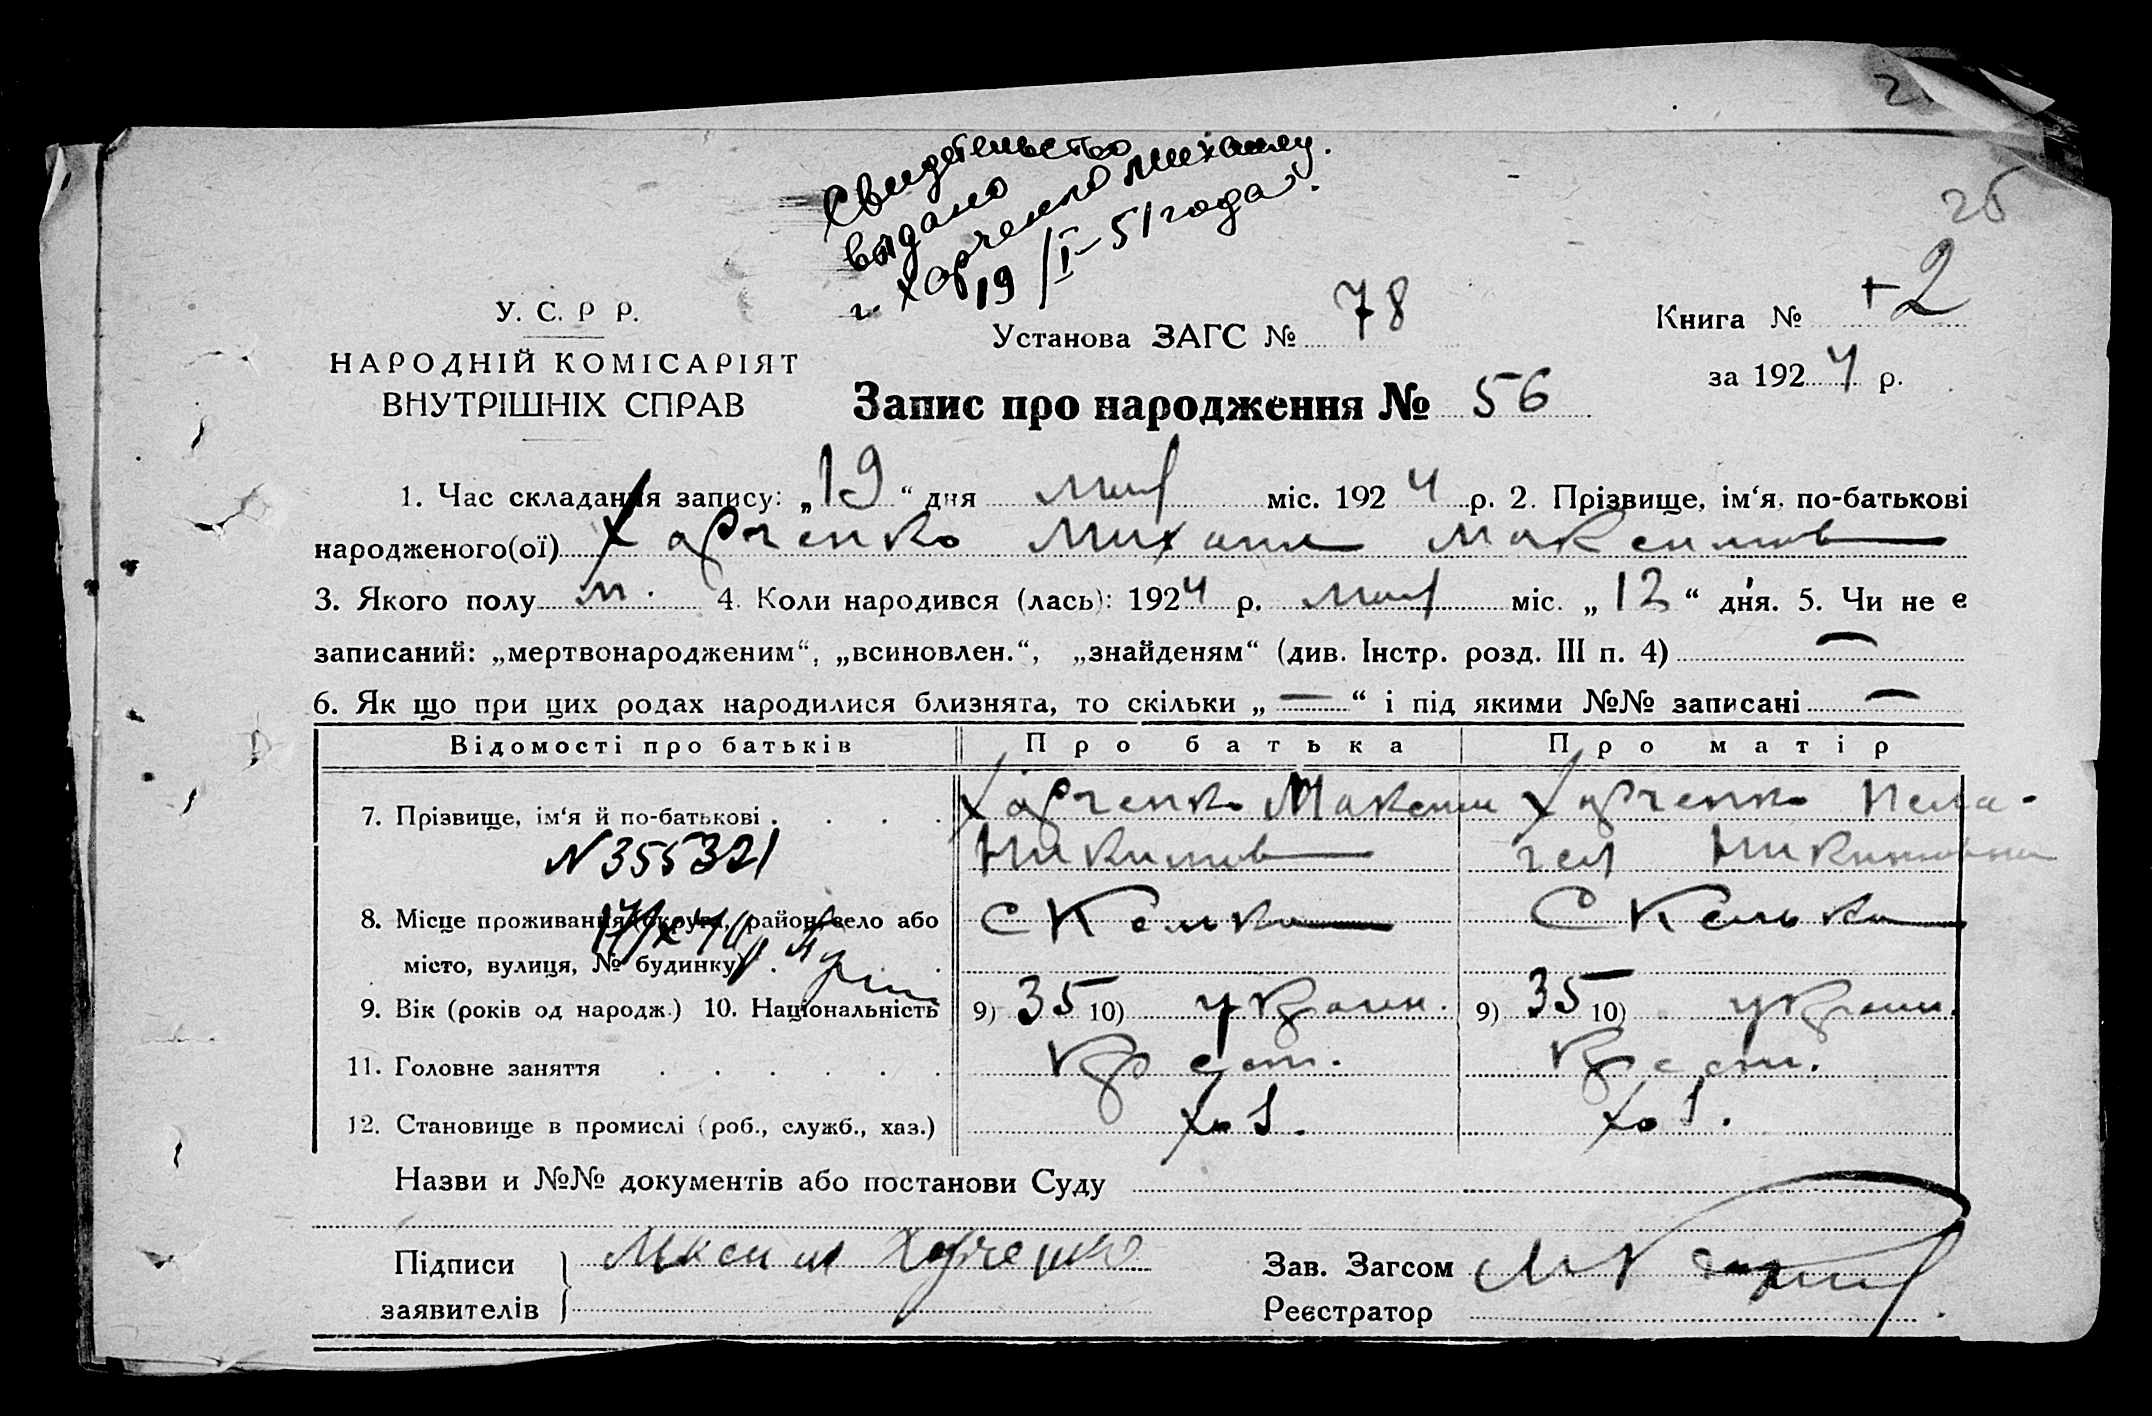 25
Свидетельство
выдано
г. Харченко Михаилу.
19/I-51 года.
У. С. Р. Р.
НАРОДНІЙ КОМІСАРІЯТ
ВНУТРІШНІХ СПРАВ
Установа ЗАГС № 78
Книга № +2
за 1924 р.
Запис про народження № 56
1. Час складання запису: „19“ дня мая міс. 1924 р. 2. Прізвище, ім‘я, по-батькові
народженого(ої) Харченко Михаил Максимов
3. Якого полу м. 4. Коли народився (лась): 1924 р. мая міс. „12“ дня. 5. Чи не є
записаний: „мертвонародженим“, „всиновлен.“, „знайденям“ (див. Інстр. розд. III п. 4) —
6. Як що при цих родах народилися близнята, то скільки „—“ і під якими №№ записані —
Відомості про батьків Про батька Про матір
7. Прізвище, ім‘я й по-батькові Харченко Максим Харченко Пела-
N 355321 Никитов гея
8. Місце проживання (округа, район, село або Скельки Скельки
місто, вулиця, № будинку)
9. Вік (років од народж.) 10. Національність 9) 35 10) украин. 9) 35 10) украин.
11. Головне заняття крест. крест.
12. Становище в промислі (роб., служб., хаз.) хоз. хоз.
Назви и №№ документів або постанови Суду
Підписи Максим Харченко Зав. Загсом
заявителів Реєстратор